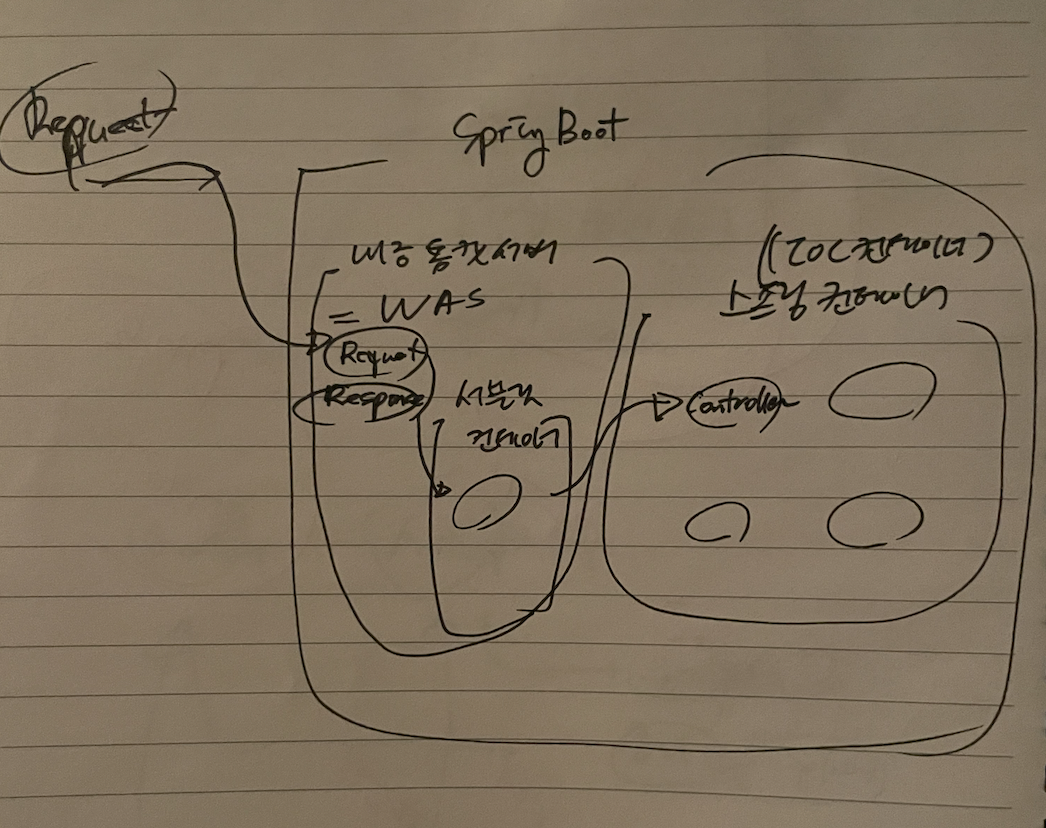 Request
Spring Boot
내장 톰캣 서버
= WAS
Request
Response
서블릿
컨테이너
(IOC 컨테이너)
스프링 컨테이너
Controller